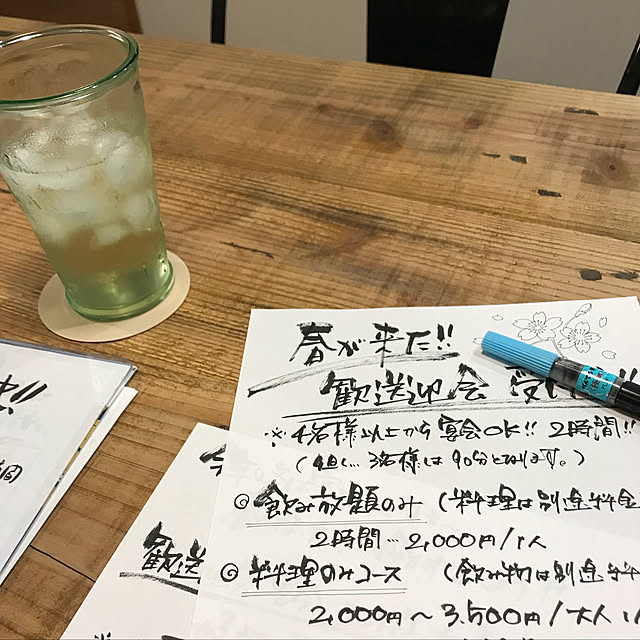 春が来た!!
歓送迎会 受
※4名様以上から宴会OK!! 2時間!!
(但し…3名様は90分となります。)
◎飲み放題のみ (料理は別途料金
2時間…2,000円/1人
◎料理のみコース (飲み物は別途料
2,000円〜3,500円/大人
歓送
※
!!
間